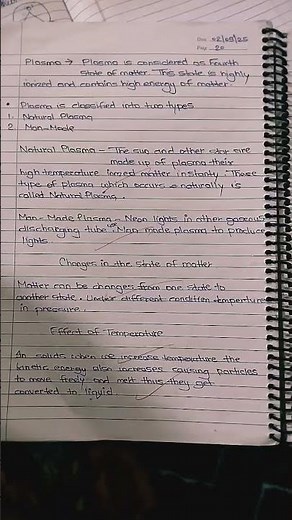 Date: 02/09/25
Page: 20
Plasma → Plasma is considered as Fourth
State of matter. This state is highly
ionized and contains high energy of matter.
• Plasma is classified into two types
1. Natural Plasma
2. Man-Made
Natural Plasma - The sun and other star are
made up of plasma their
high temperature ionzed matter instanty. These
type of plasma which occurs naturally is
called Natural Plasma.
Man-Made Plasma - Neon lights in other gaseous
discharging tube Man made plasma to produce
lights.
Changes in the state of matter
Matter can be changes from one state to
another state. Under different condition temperture
in pressure.
Effect of Temperature
In solids when we increase temperature the
kinetic energy also increases causing particles
to move freely and melt thus they get
converted to liquid.